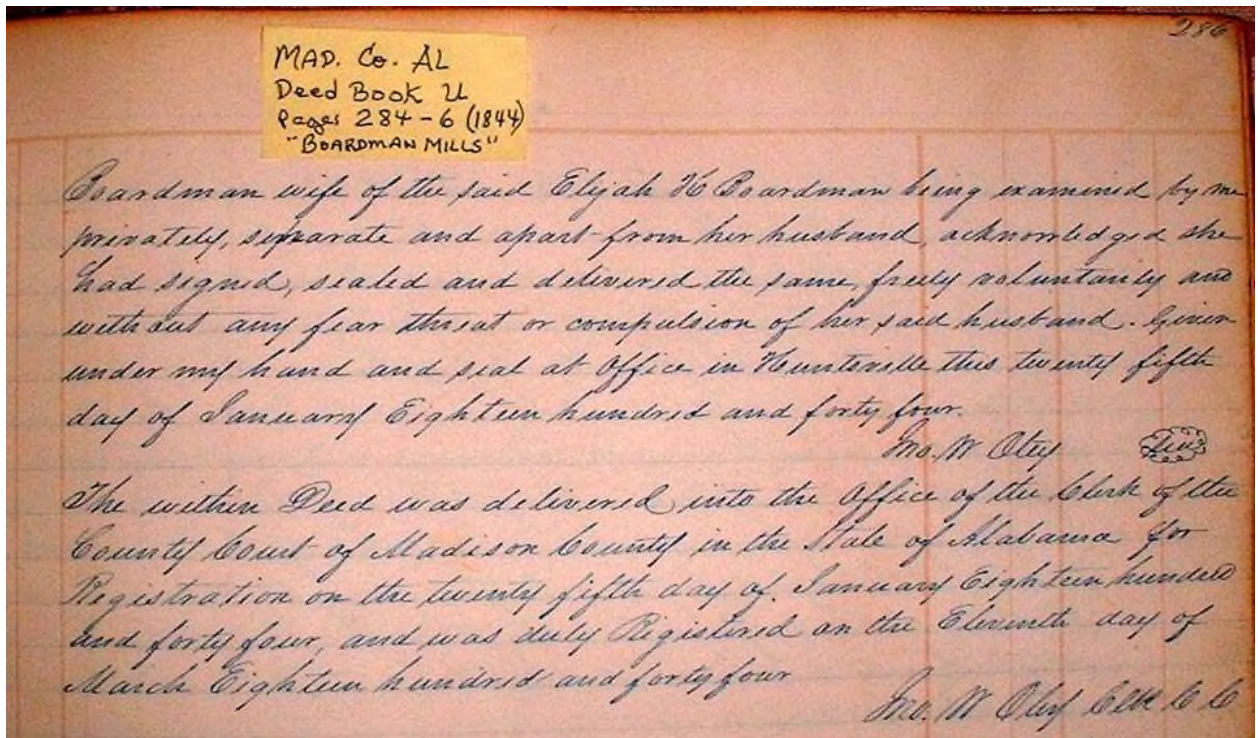 286
MAD. Co. AL
Deed Book U
Pages 284-6 (1844)
"BOARDMAN MILLS"
Boardman wife of the said Elijah H Boardman being examined by me
privately, separate and apart from her husband, acknowledged she
had signed, sealed and delivered the same, freely voluntarily and
without any fear threat or compulsion of her said husband. Given
under my hand and seal at Office in Huntsville this twenty fifth
day of January Eighteen hundred and forty four.
Jno. W Otey
The within Deed was delivered into the Office of the Clerk of the
County Court of Madison County in the State of Alabama for
Registration on the twenty fifth day of January Eighteen hundred
and forty four, and was duly Registered on the Eleventh day of
March Eighteen hundred and forty four
Jno. W Otey Clk C C